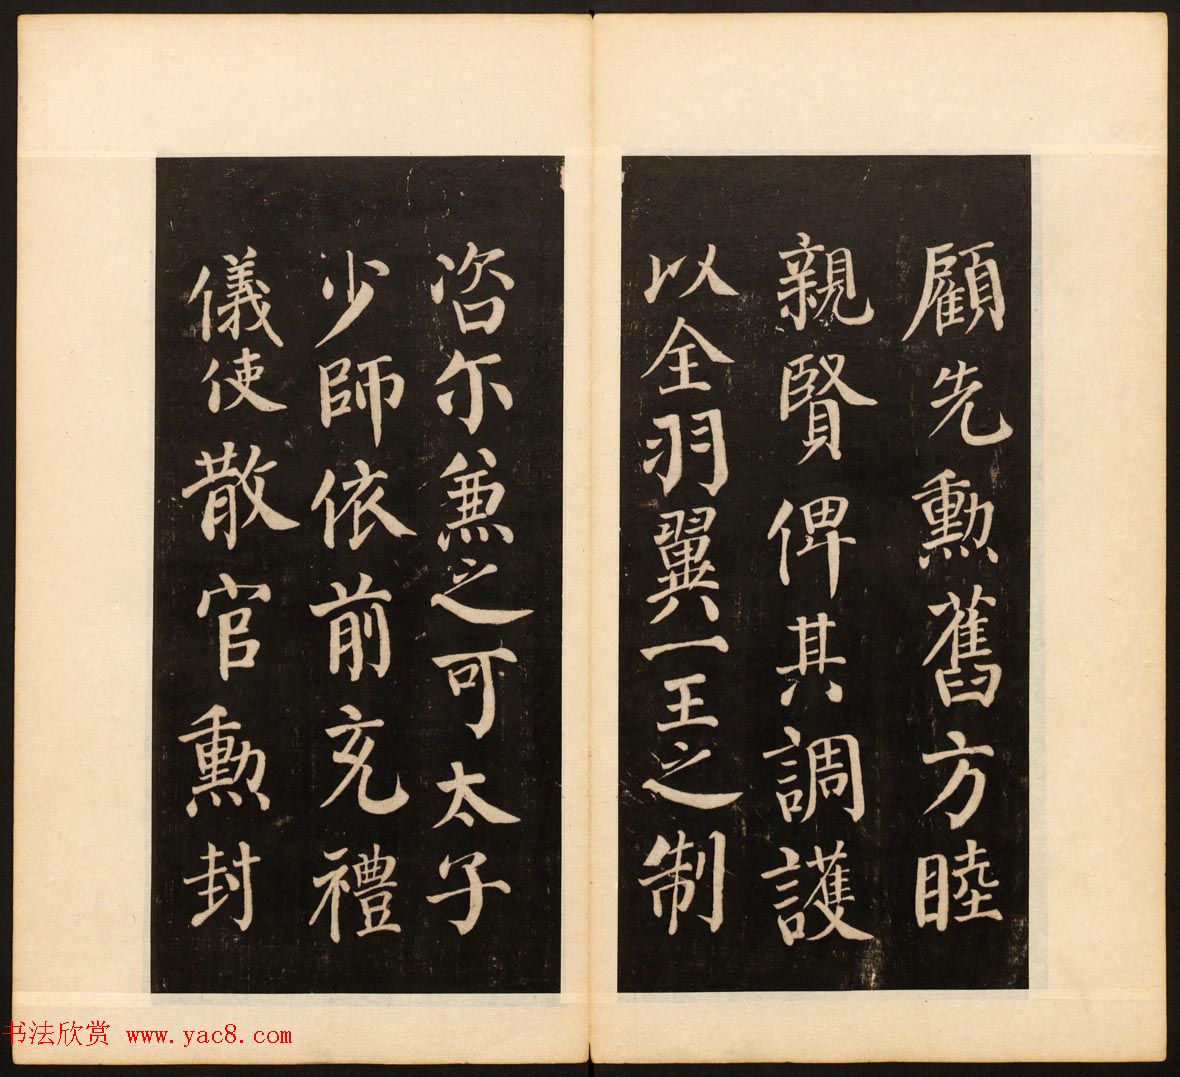 顧先勳舊方睦
親賢俾其調護
以全羽翼一王之制
咨尔兼之可太子
少師依前充禮
儀使散官勳封
书法欣赏 www.yac8.com